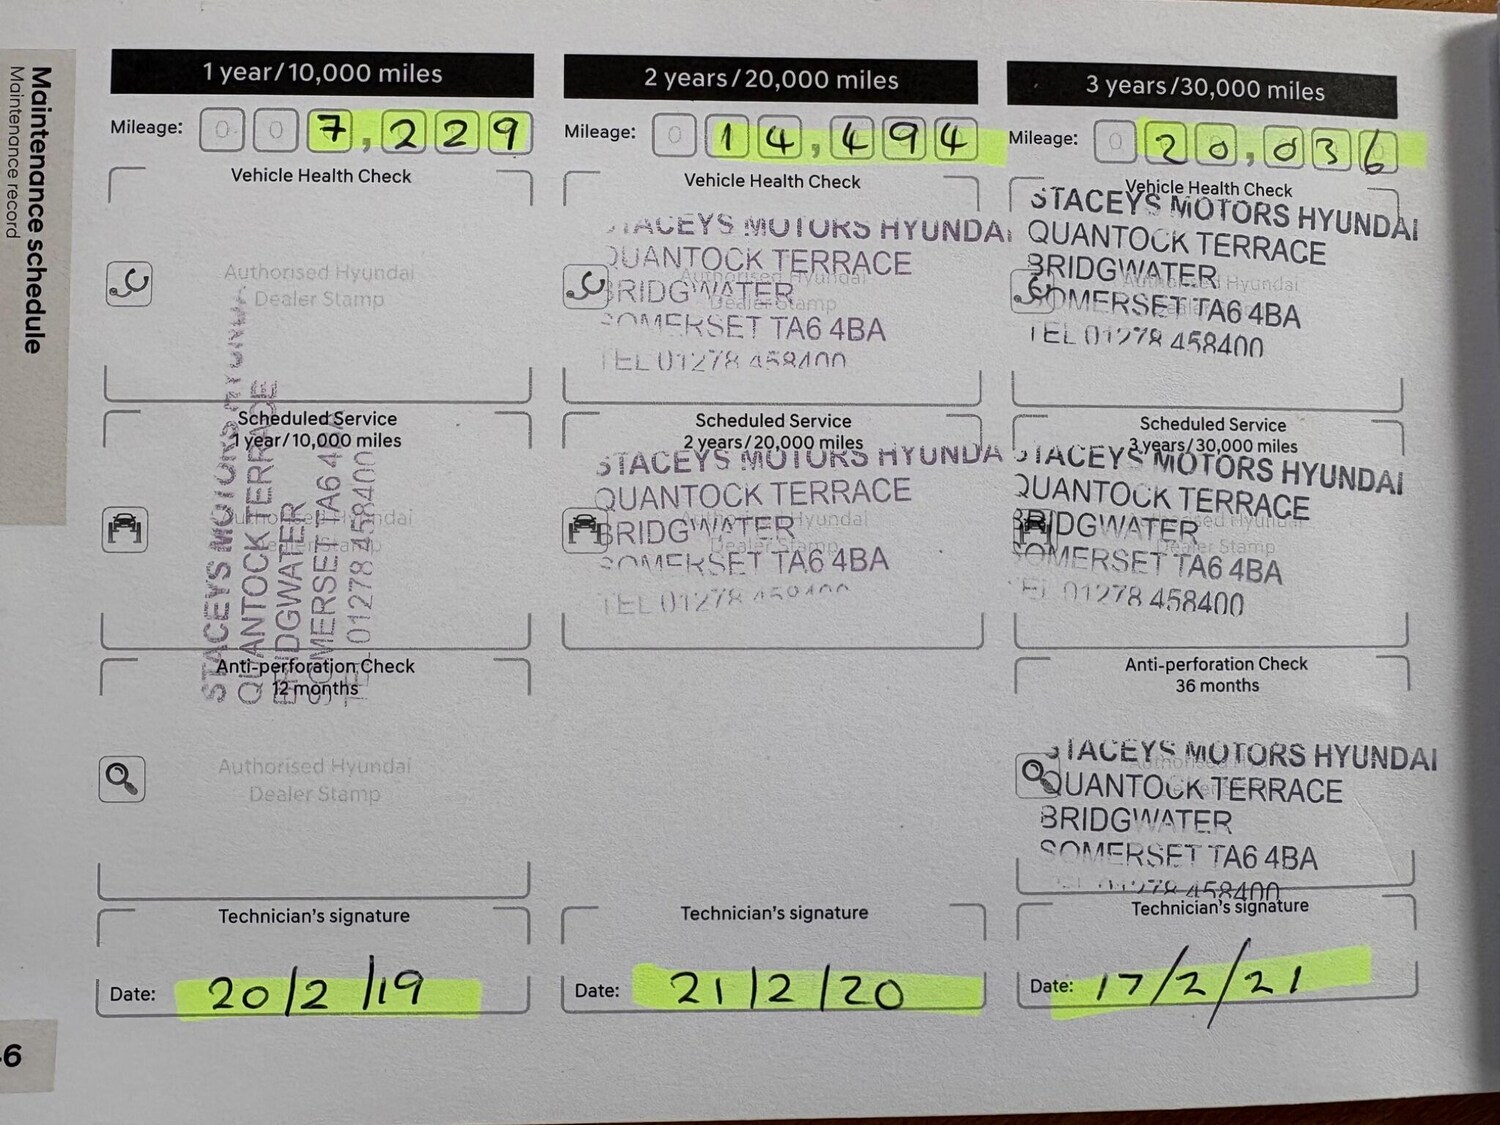 Maintenance schedule
Maintenance record
1 year/10,000 miles
Mileage: 0 0 7,229
Vehicle Health Check
Authorised Hyundai
Dealer Stamp
Scheduled Service
1 year/10,000 miles
Authorised Hyundai
Dealer Stamp
STACEYS MOTORS HYUNDAI
QUANTOCK TERRACE
BRIDGWATER
SOMERSET TA6 4BA
TEL 01278 458400
Anti-perforation Check
12 months
Authorised Hyundai
Dealer Stamp
Technician's signature
Date: 20/2/19
2 years/20,000 miles
Mileage: 0 14,494
Vehicle Health Check
Authorised Hyundai
Dealer Stamp
STACEYS MOTORS HYUNDAI
QUANTOCK TERRACE
BRIDGWATER
SOMERSET TA6 4BA
TEL 01278 458400
Scheduled Service
2 years/20,000 miles
Authorised Hyundai
Dealer Stamp
STACEYS MOTORS HYUNDA
QUANTOCK TERRACE
BRIDGWATER
SOMERSET TA6 4BA
TEL 01278 458400
Technician's signature
Date: 21/2/20
3 years/30,000 miles
Mileage: 0 20,036
Vehicle Health Check
Authorised Hyundai
Dealer Stamp
STACEYS MOTORS HYUNDAI
QUANTOCK TERRACE
BRIDGWATER
SOMERSET TA6 4BA
TEL 01278 458400
Scheduled Service
3 years/30,000 miles
Authorised Hyundai
Dealer Stamp
STACEYS MOTORS HYUNDAI
QUANTOCK TERRACE
BRIDGWATER
SOMERSET TA6 4BA
TEL 01278 458400
Anti-perforation Check
36 months
STACEYS MOTORS HYUNDAI
QUANTOCK TERRACE
BRIDGWATER
SOMERSET TA6 4BA
TEL 01278 458400
Technician's signature
Date: 17/2/21